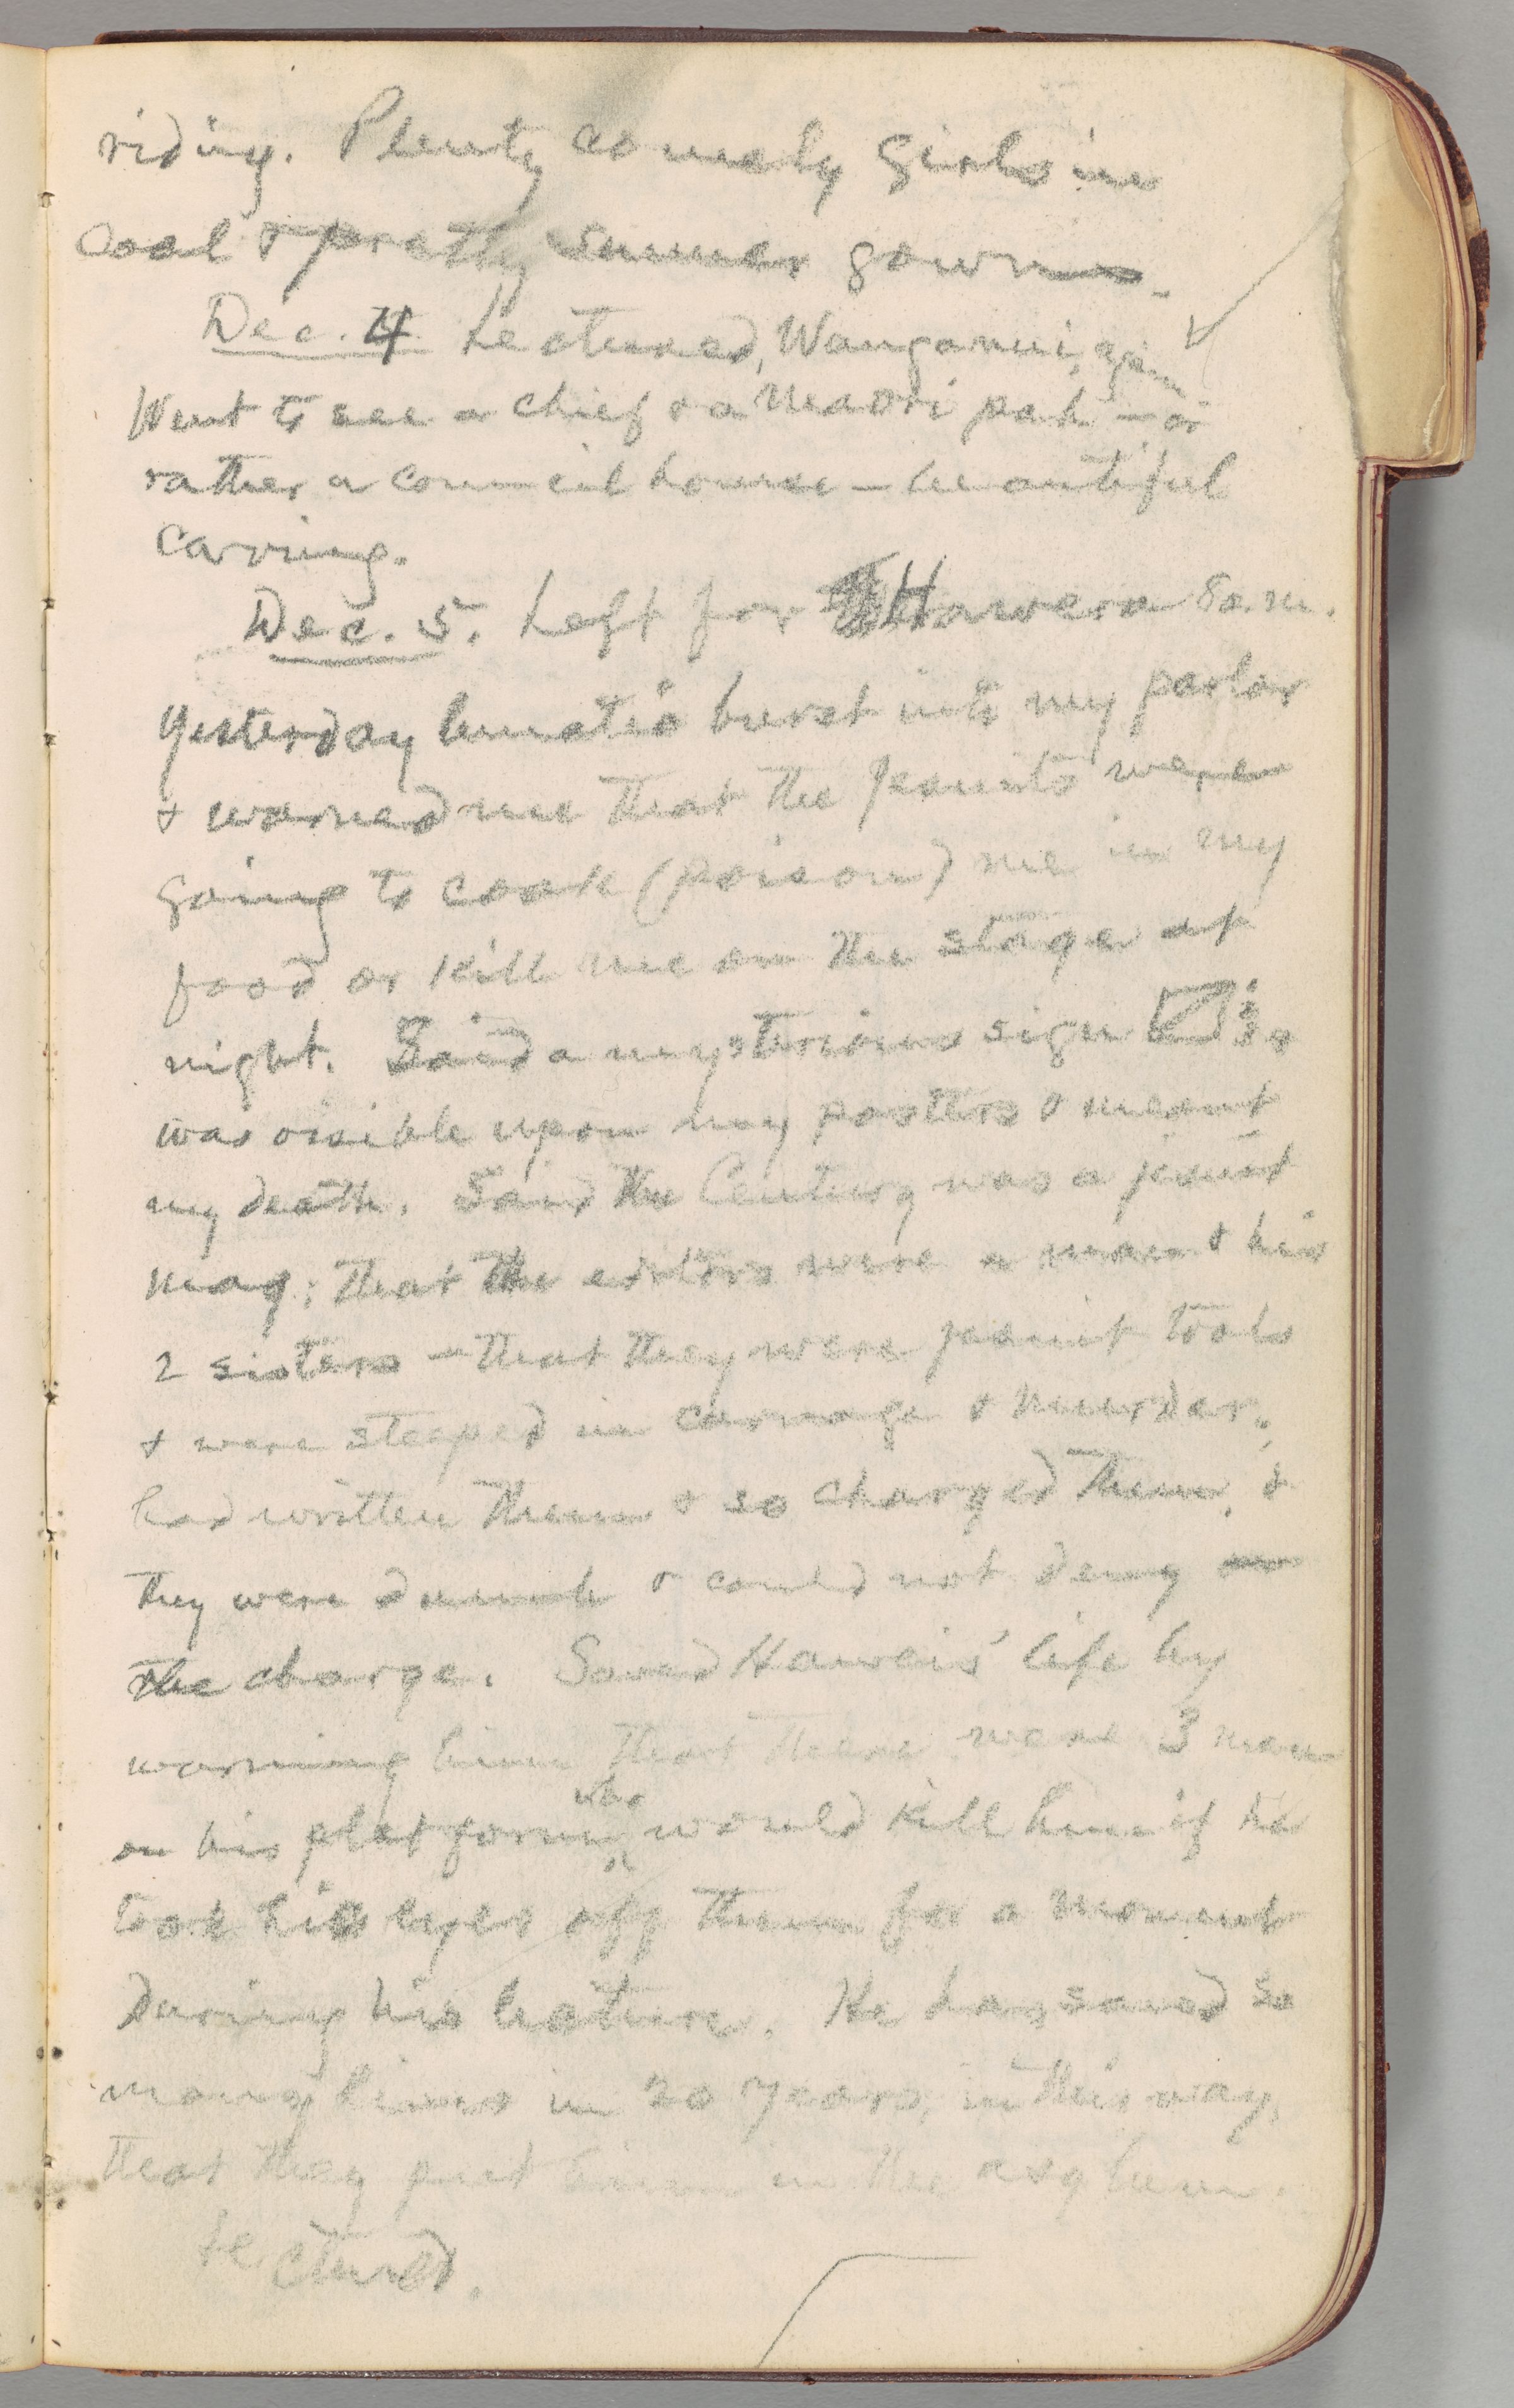 riding. Plenty comely girls in
cool & pretty summer gowns.
Dec. 4. Lectured, Wanganui, again
Went to see a chief & a Maori pah — or
rather a council house — beautiful
carving.
Dec. 5. Left for Hawera 8 a.m.
Yesterday lunatic burst into my parlor
& warned me that the Jesuits were
going to cook (poison) me in my
food or kill me on the stage at
night. Said a mysterious sign
was visible upon my posters & meant
my death. Said the Century was a jesuit
mag; that the editors were a man & his
2 sisters — that they were jesuit tools
& were steeped in carnage & murder;
had written them & so charged them, &
they were dumb & could not deny
the charge. Saved Haweis' life by
warning him that there were 3 men
on his platform who would kill him if he
took his eyes off them for a moment
during his lecture. He has saved so
many lives in 20 years, in this way,
that they put him in the asylum.
Lectured.